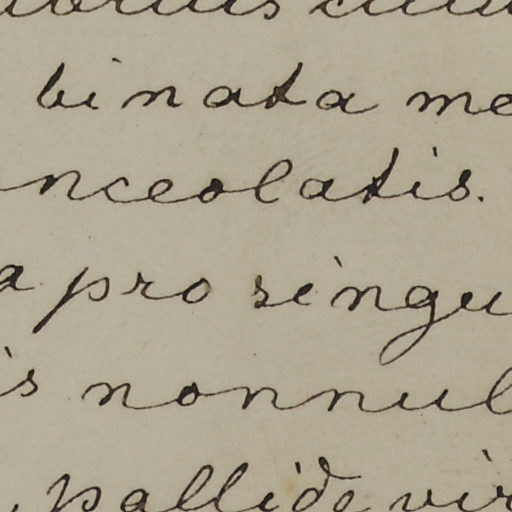 binata me
nceolatis.
a pro singu
is nonnul
, pallide vir